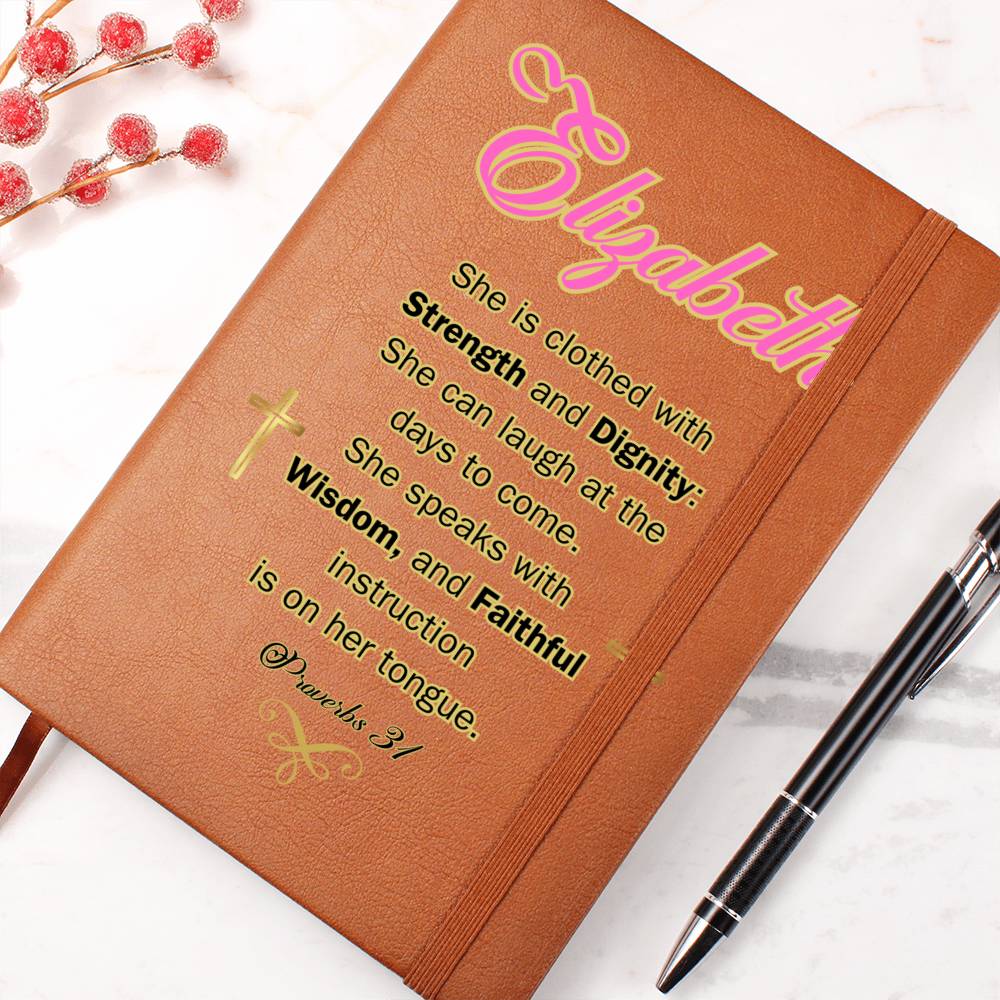 Elizabeth
She is clothed with
Strength and Dignity:
She can laugh at the
days to come.
She speaks with
Wisdom, and Faithful
instruction
is on her tongue.
Proverbs 31